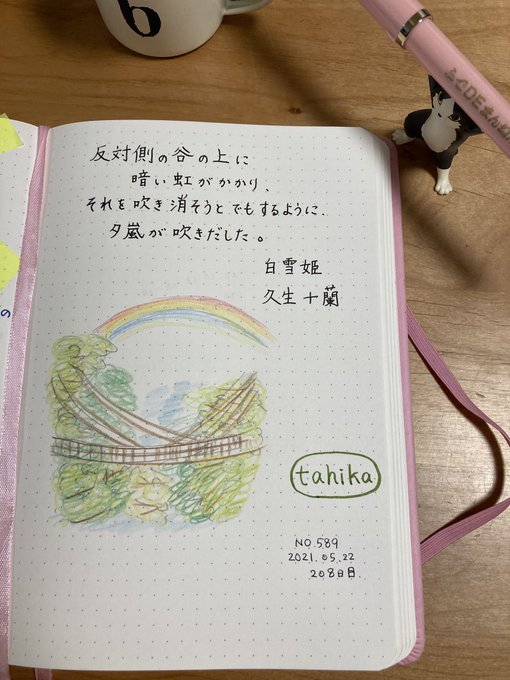 b
反対側の谷の上に
暗い虹がかかり、
それを吹き消そうとでもするように、
夕嵐が吹きだした。
白雪姫
久生十蘭
tahika
NO.589
2021.05.22
208日目.
の